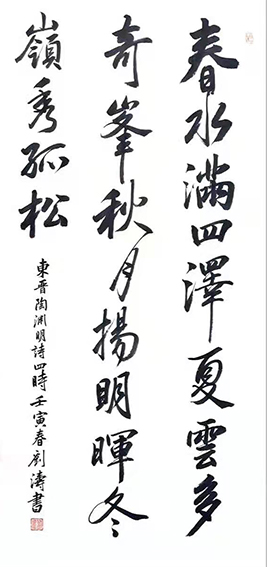 春水滿四澤夏雲多
奇峯秋月揚明暉冬
嶺秀孤松
東晋陶淵明詩四時壬寅春劉濤書